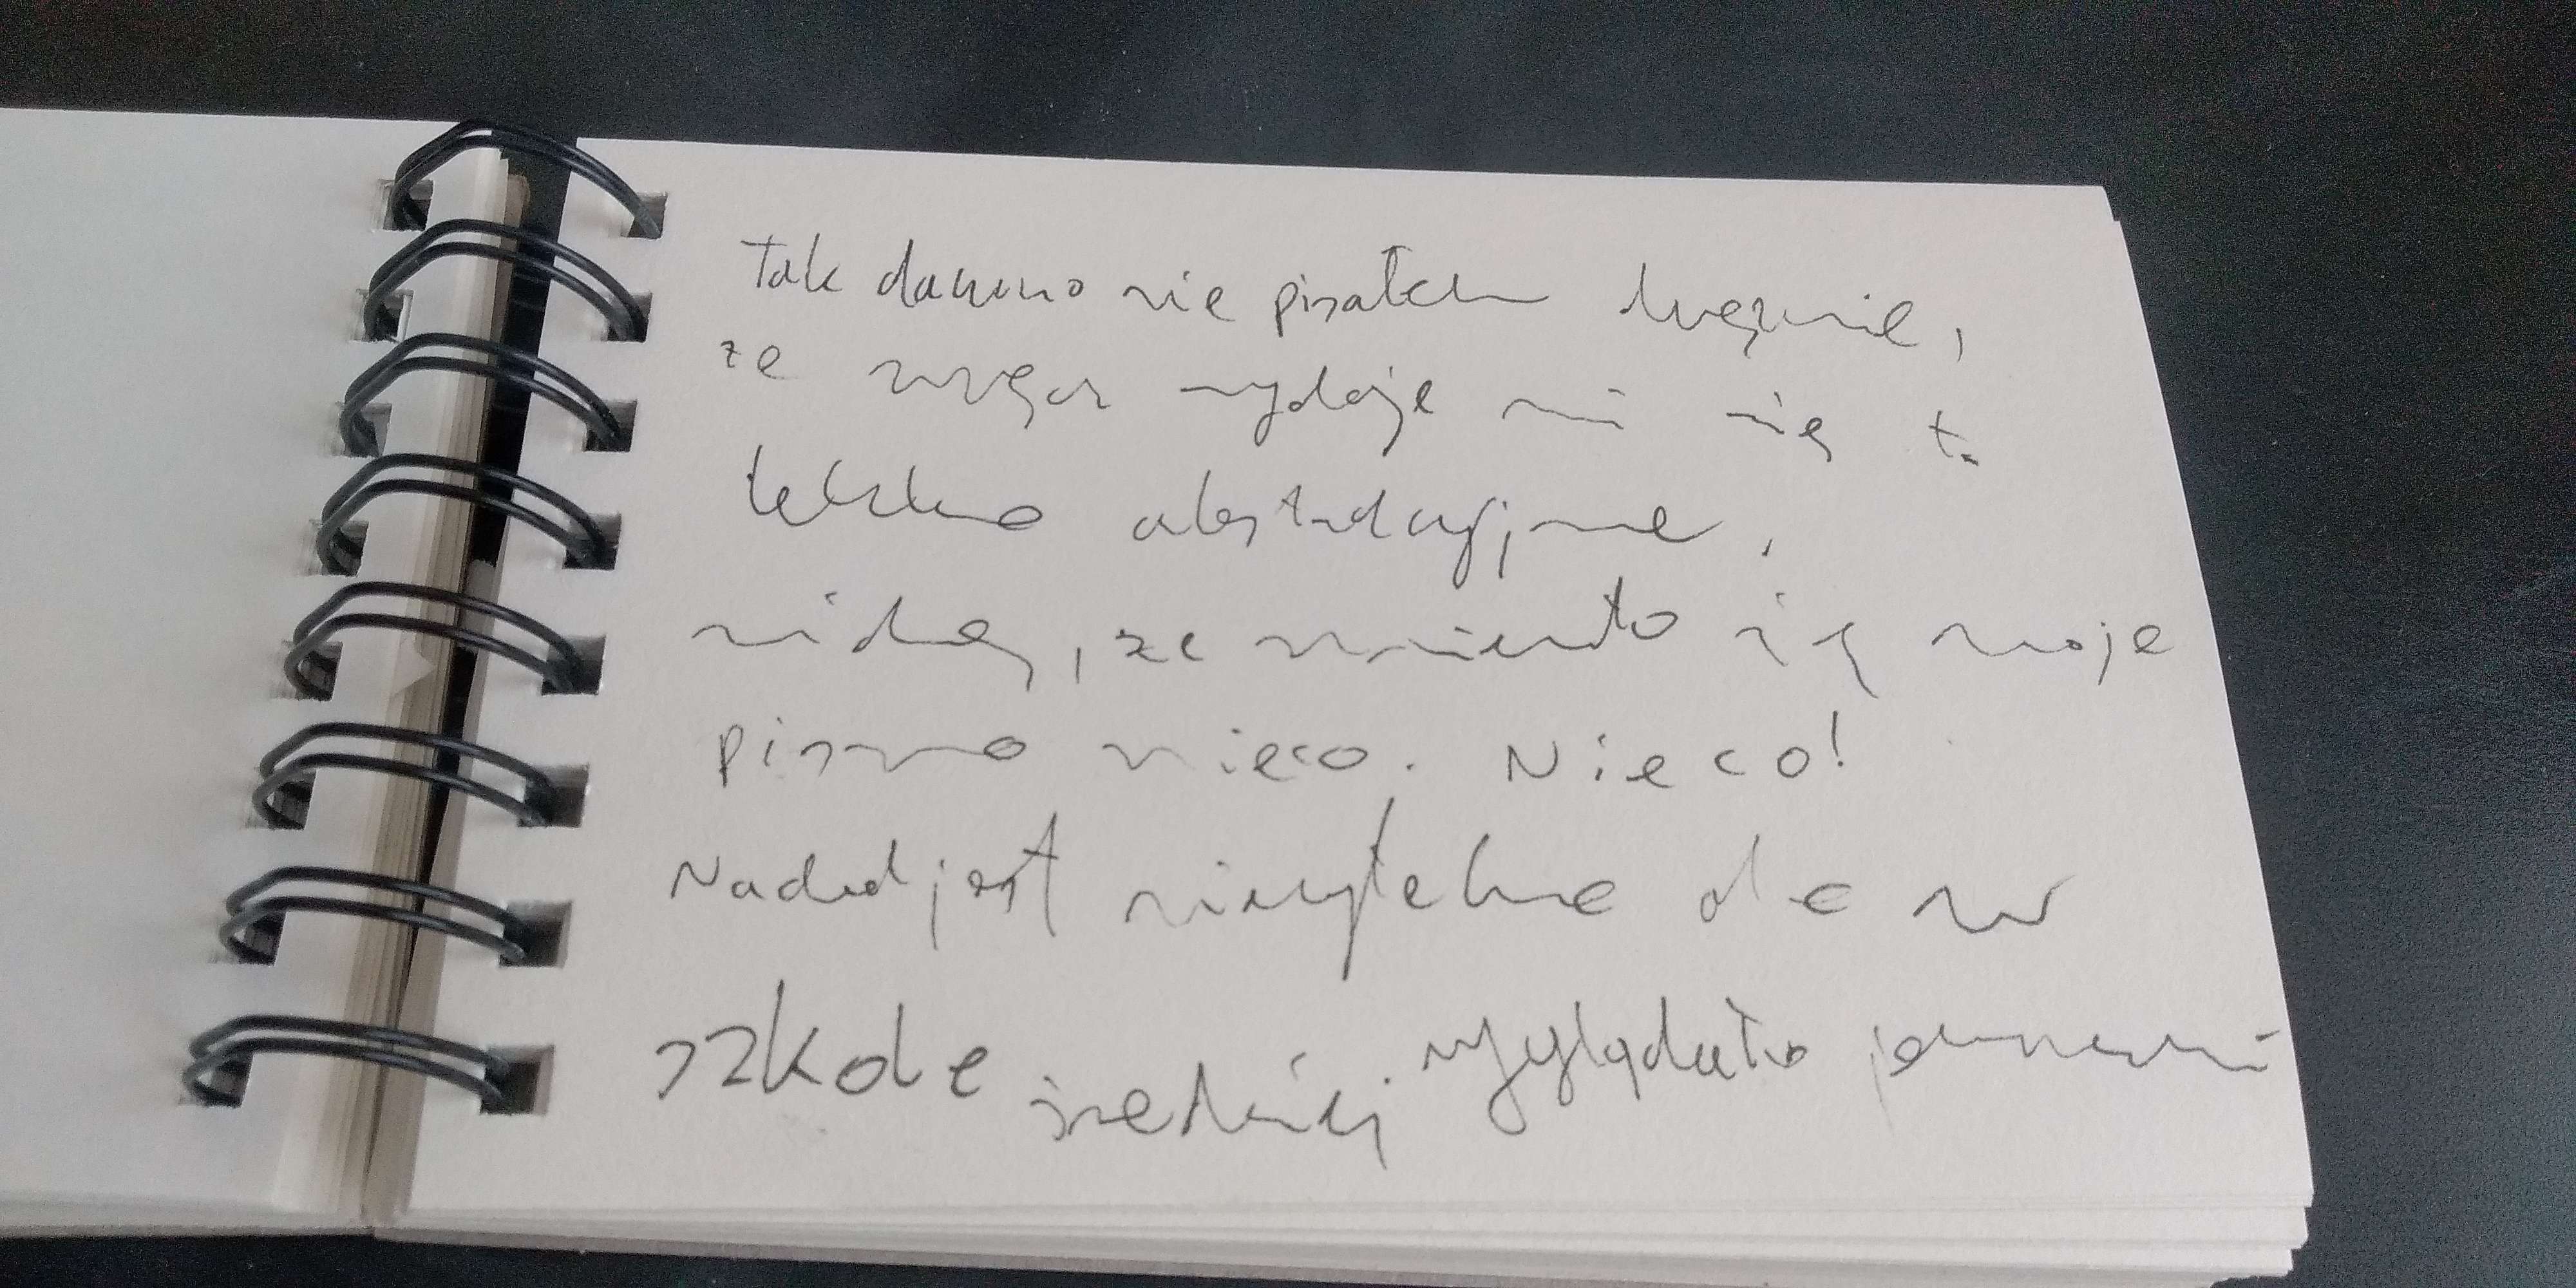 Tak dawno nie pisałem ręcznie,
że wręcz wydaje mi się to
lekko abstrakcyjne.
widzę, że zmieniło się moje
pismo nieco. Nieco!
Nadal jest nieczytelne ale w
szkole średniej wyglądało